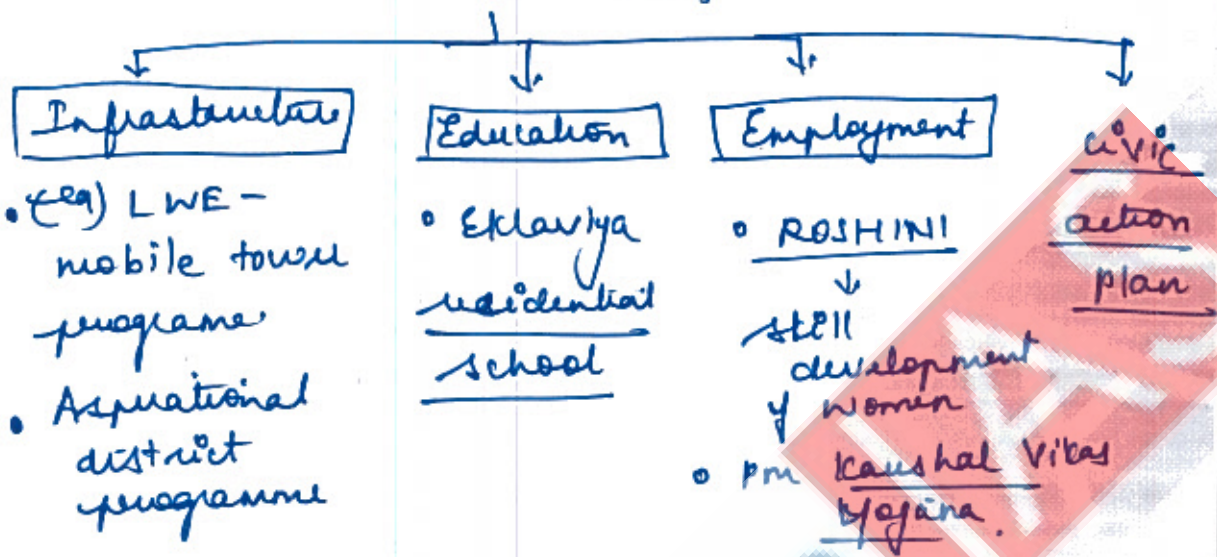 Infrastructure
• (eg) LWE -
mobile tower
programe
• Aspirational
district
programme
Education
• Eklaviya
residential
school
Employment
• ROSHINI
↓
skill
development
of women
• PM Kaushal Vikas
Yojana.
civic
action
plan
IAS